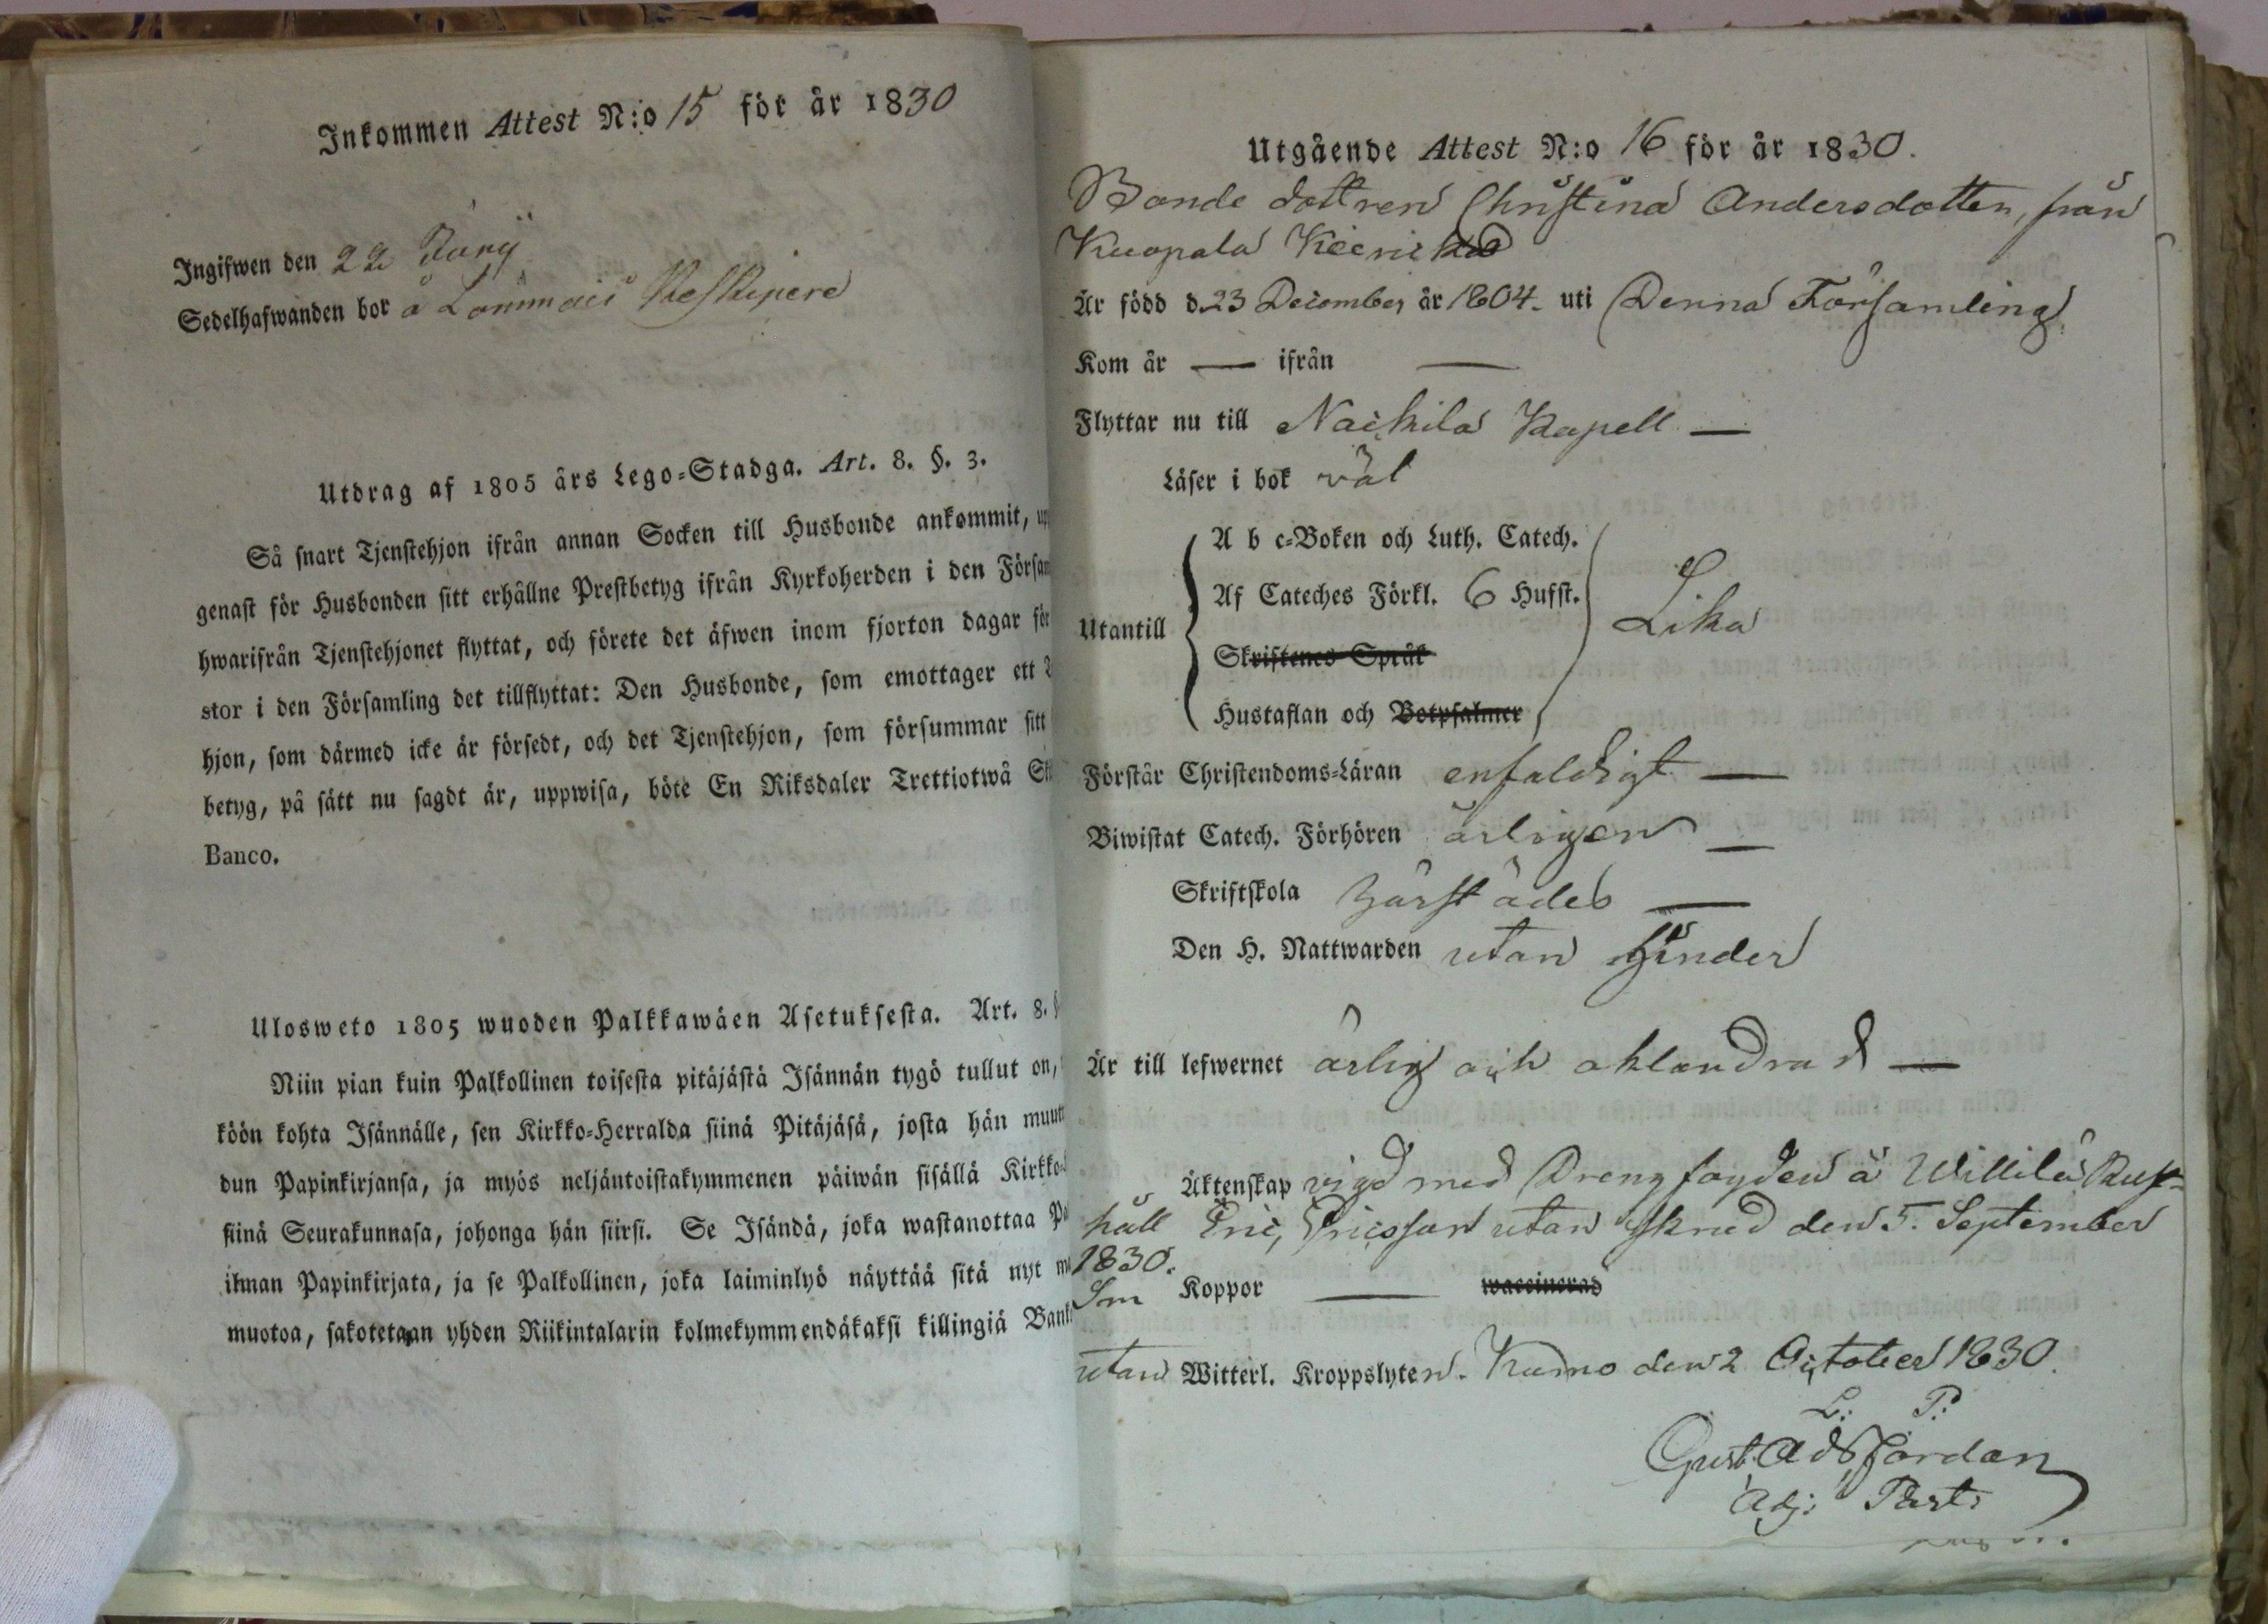 Inkommen Attest N:o 15 för år 1830
Ingifwen den 22 Junij
Sedelhafwanden bor å Lammais
Utdrag af 1805 års Lego-Stadga. Art. 8. §. 3.
Så snart Tjenstehjon ifrån annan Socken till Husbonde ankommit,
genast för Husbonden sitt erhållne Prestbetyg ifrån Kyrkoherden i den Försam
hwarifrån Tjenstehjonet flyttat, och förete det äfwen inom fjorton dagar för
stor i den Församling det tillflyttat: Den Husbonde, som emottager ett
hjon, som därmed icke är försedt, och det Tjenstehjon, som försummar sitt
betyg, på sätt nu sagdt är, uppwisa, böte En Riksdaler Trettiotwå
Banco.
Ulosweto 1805 wuoden Palkkawäen Asetuksesta. Art. 8. §
Niin pian kuin Palkollinen toisesta pitäjästä Isännän tygö tullut on,
köön kohta Isännälle, sen Kirkko-Herralda siinä Pitäjäsä, josta hän muutt
dun Papinkirjansa, ja myös neljäntoistakymmenen päiwän sisällä Kirkko-
siinä Seurakunnasa, johonga hän siirsi. Se Isändä, joka wastanottaa
ilman Papinkirjata, ja se Palkollinen, joka laiminlyö näyttää sitä nyt
muotoa, sakotetaan yhden Riikintalarin kolmekymmendäkaksi killingiä Bank
Utgående Attest N:o 16 för år 1830.
Bonde dottren Christina Andersdotter, från
Kuopala
Är född d. 23 December år 1804. uti Denna Församling
Kom år — ifrån —
Flyttar nu till Nackila Kapell —
Läser i bok väl
A b c-Boken och Luth. Catech.
Af Cateches Förkl. 6 Hufst.
Utantill
Lika
Skriftenes Språk
Hustaflan och Botpsalmer
Förstår Christendoms-Läran enfaldigt —
Biwistat Catech. Förhören årligen —
Skriftskola härstädes —
Den H. Nattwarden utan hinder
Är till lefwernet ärlig och oklandrad —
Äktenskap vigd med Dreng fogden å Willilä Rust-
håll Eric Ericsson utan den 5. September
1830.
Koppor — waccinerad
utan Witterl. Kroppslyten. Kumo den 2 October 1830.
L: P:
Gust. Ad Jordan
Adj: Past: